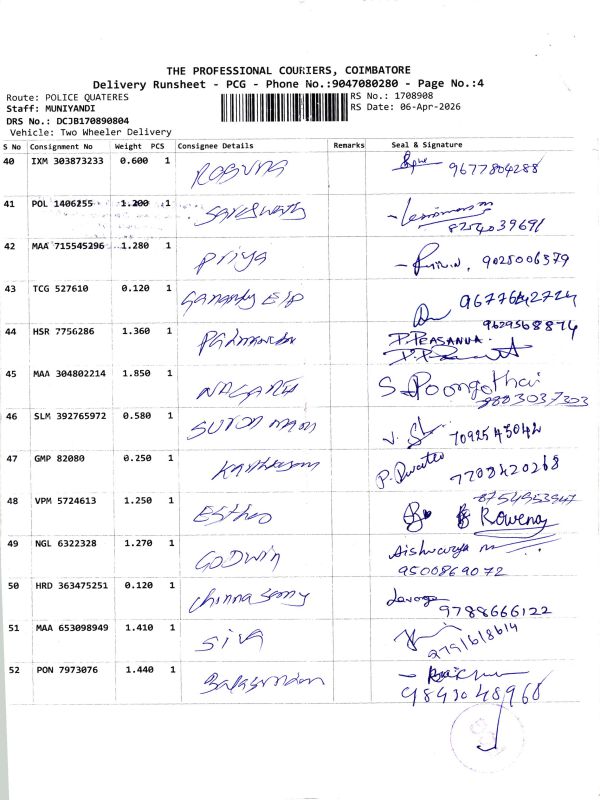 THE PROFESSIONAL COURIERS, COIMBATORE
Delivery Runsheet - PCG - Phone No.:9047080280 - Page No.:4
Route: POLICE QUATERES RS No.: 1708908
Staff: MUNIYANDI RS Date: 06-Apr-2026
DRS No.: DCJB170890804
Vehicle: Two Wheeler Delivery
S No Consignment No Weight PCS Consignee Details Remarks Seal & Signature
40 IXM 303873233 0.600 1 9677804288
41 POL 1406255 1.200 1 8254039691
42 MAA 715545296 1.280 1 Priya 9028006379
43 TCG 527610 0.120 1 9677642724
9629568874
44 HSR 7756286 1.360 1 P. PRASANNA
45 MAA 304802214 1.850 1 S. Poongothai
9883037303
46 SLM 392765972 0.580 1 7092545042
47 GMP 82080 0.250 1 7708420268
8754953947
48 VPM 5724613 1.250 1 Esther Rowena
49 NGL 6322328 1.270 1 GODWIN Aishwarya m
9500869072
50 HRD 363475251 0.120 1 Chinnasamy
9788666122
51 MAA 653098949 1.410 1 Siva
52 PON 7973076 1.440 1
9843048968